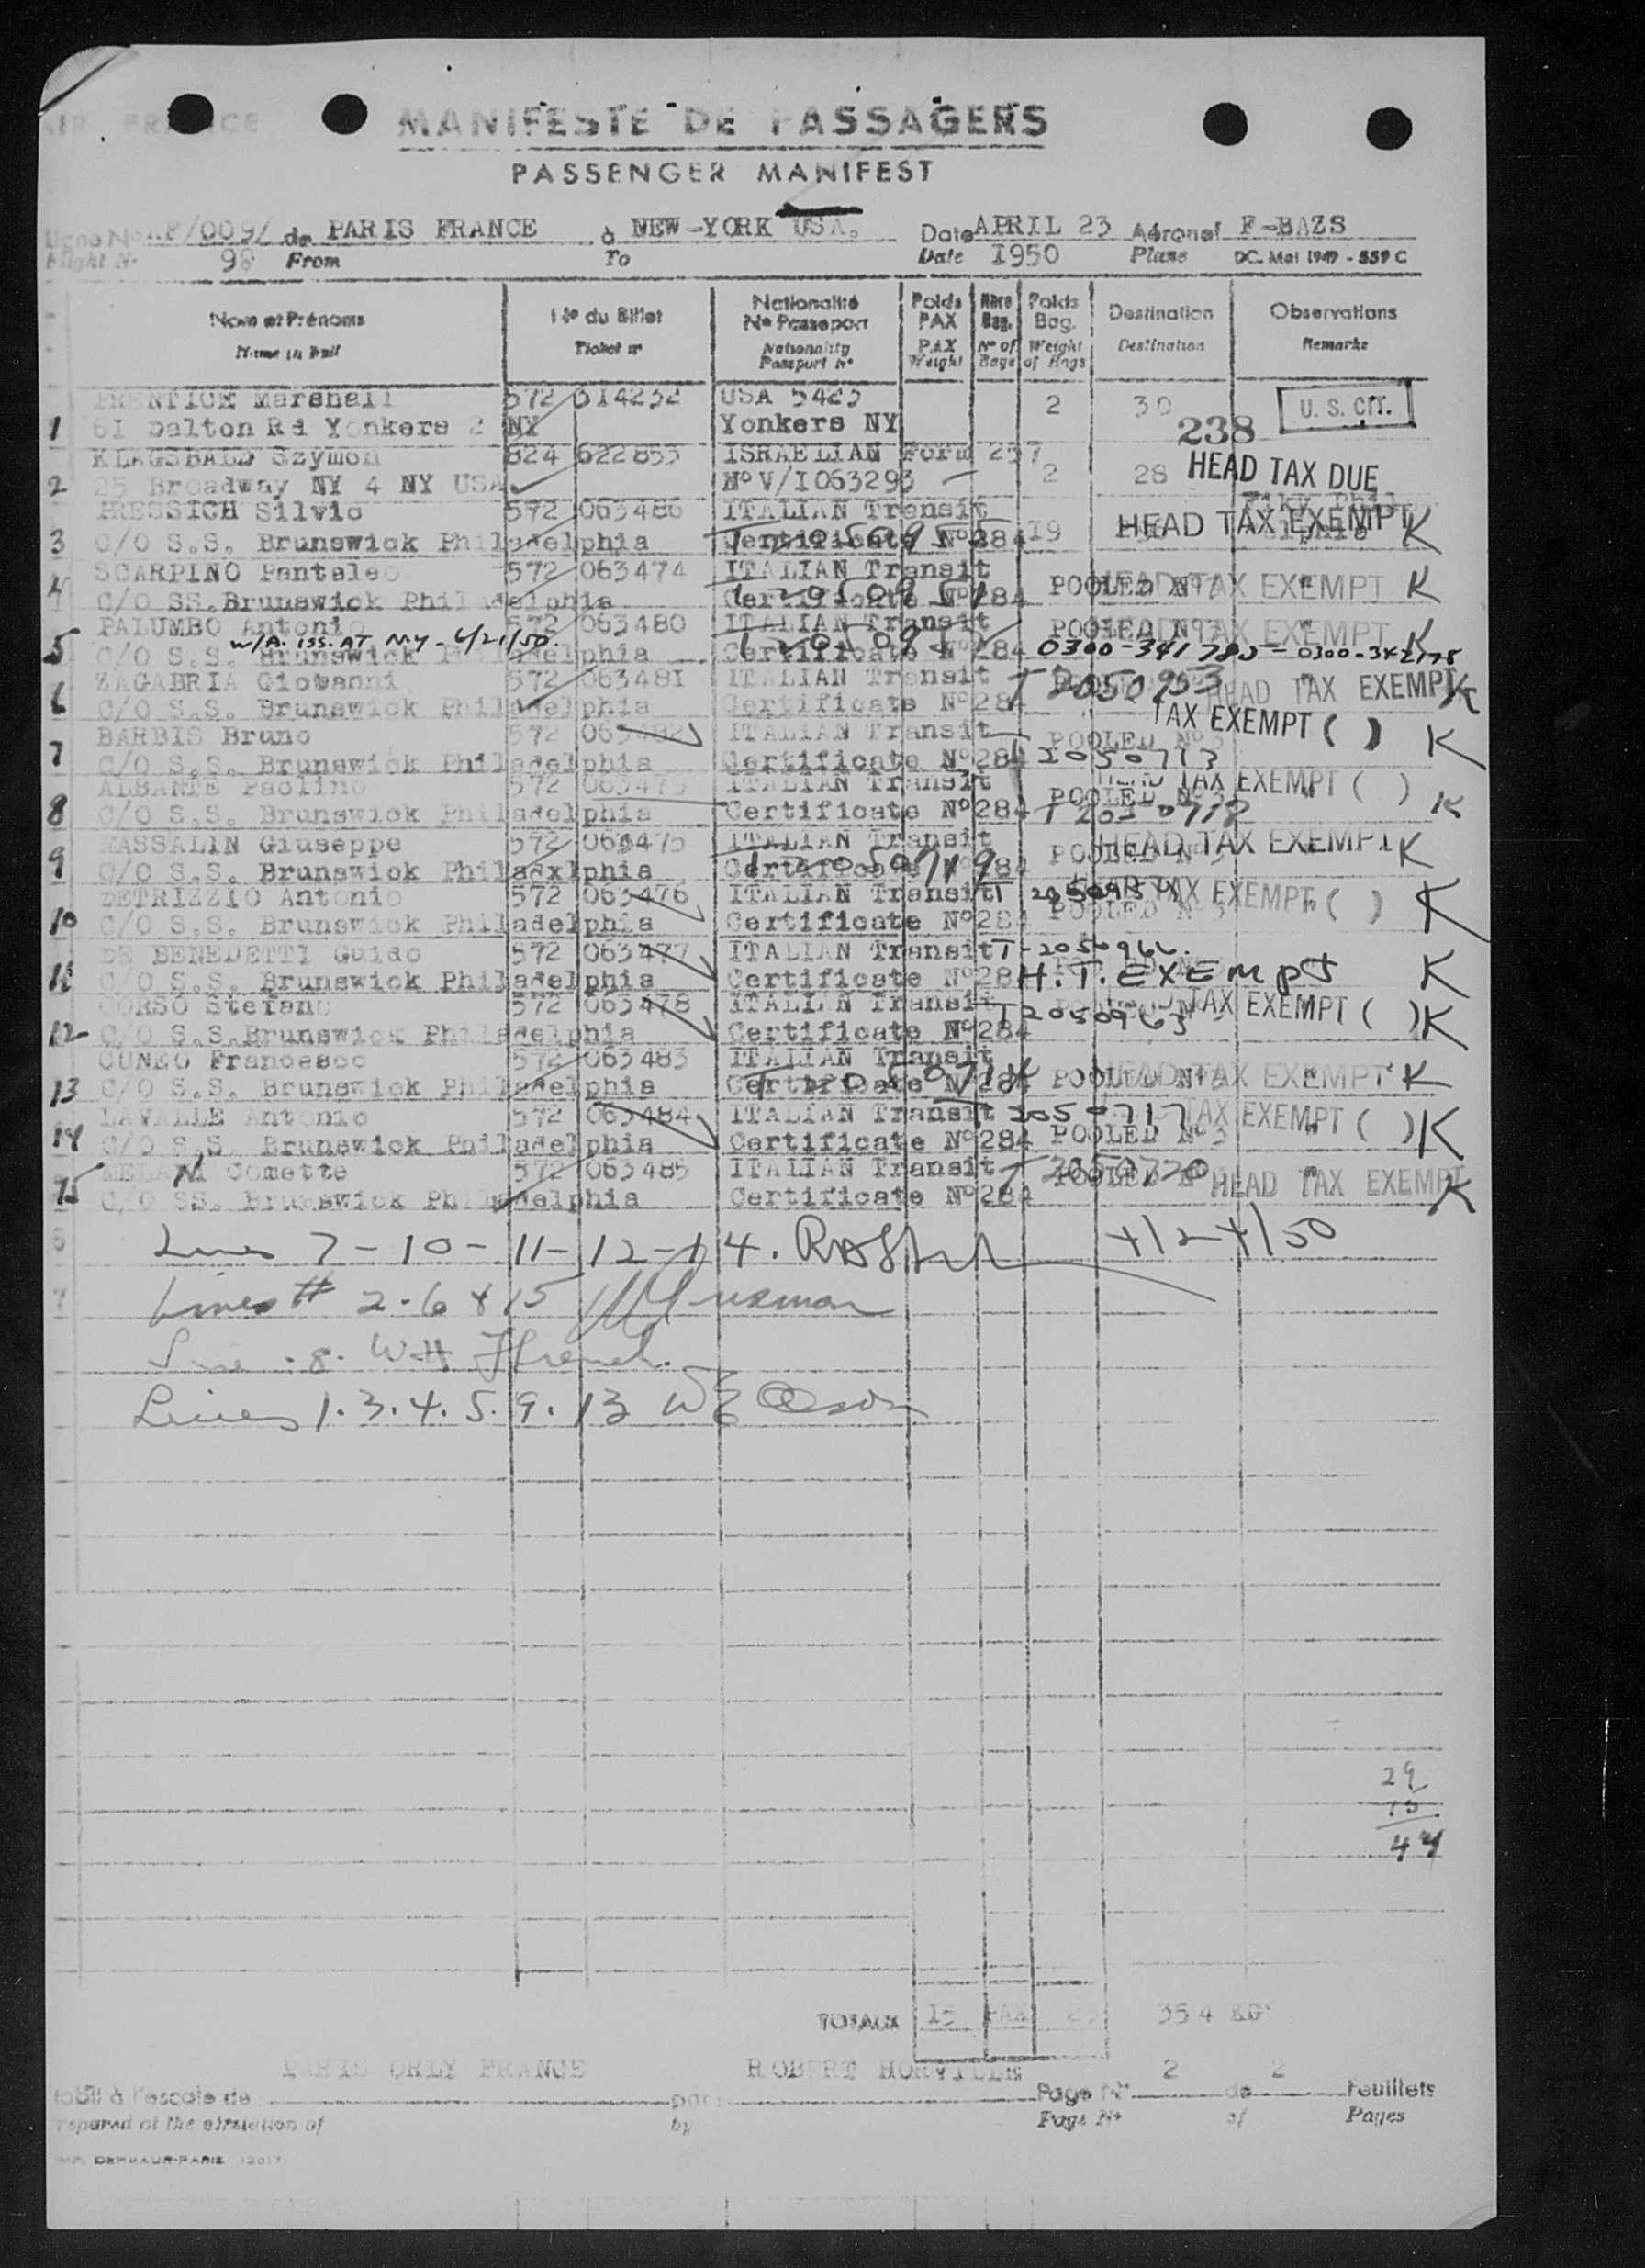 AIR FRANCE
MANIFESTE DE PASSAGERS
PASSENGER MANIFEST
Ligne No AF/009/ de PARIS FRANCE à NEW-YORK USA. Date APRIL 23 Aéronef F-BAZS
Flight No 98 From To Date 1950 Plane DC. Mai 1949 - 559 C
Nom et Prénoms No du Billet Nationalité No Passeport Poids PAX Nbre Bag. Poids Bag. Destination Observations
Name in Full Ticket no Nationality Passport No PAX Weight No of Bags Weight of Bags Destination Remarks
PRENTICE Marshall 572 314232 USA 5423 2 30 U. S. CIT.
1 61 Dalton Rd Yonkers 2 NY Yonkers NY 238
KLAGSBALD Szymon 824 622853 ISRAELIAN Form 257 HEAD TAX DUE
2 25 Broadway NY 4 NY USA No V/I063293 2 28
PRESSICH Silvio 572 063486 ITALIAN Transit
3 C/O S.S. Brunswick Philadelphia Certificate No 284 19 HEAD TAX EXEMPT K
SCARPINO Pantaleo 572 063474 ITALIAN Transit
4 C/O SS. Brunswick Philadelphia Certificate No 284 POOLED No 3 HEAD TAX EXEMPT K
PALUMBO Antonio 572 063480 ITALIAN Transit POOLED No 3 HEAD TAX EXEMPT K
W/A. ISS. AT NY - 4/21/50.
5 C/O S.S. Brunswick Philadelphia Certificate No 284
ZAGABRIA Giovanni 572 063481 ITALIAN Transit T 2050953
6 C/O S.S. Brunswick Philadelphia Certificate No 284 HEAD TAX EXEMPT K
BARBIS Bruno 572 063482 ITALIAN Transit POOLED No 3 TAX EXEMPT ( ) K
7 C/O S.S. Brunswick Philadelphia Certificate No 284 T 2050713
ALBANTE Paolino 572 063473 ITALIAN Transit POOLED No 3 HEAD TAX EXEMPT ( ) K
8 C/O S.S. Brunswick Philadelphia Certificate No 284 T 2050718
MASSALIN Giuseppe 572 063475 ITALIAN Transit POOLED No 3 HEAD TAX EXEMPT K
9 C/O S.S. Brunswick Philadxlphia Certificate No 284 T 2050719
DETRIZZIO Antonio 572 063476 ITALIAN Transit HEAD TAX EXEMPT ( ) K
10 C/O S.S. Brunswick Philadelphia Certificate No 284 POOLED No 3
DE BENEDETTI Guido 572 063477 ITALIAN Transit T-2050966.
11 C/O S.S. Brunswick Philadelphia Certificate No 284 H.T. EXEMPT K
CORSO Stefano 572 063478 ITALIAN Transit TAX EXEMPT ( ) K
12 C/O S.S. Brunswick Philadelphia Certificate No 284 T 2050963
CUNEO Francesco 572 063483 ITALIAN Transit
13 C/O S.S. Brunswick Philadelphia Certificate No 284 POOLED No 3 HEAD TAX EXEMPT K
LAVALLE Antonio 572 063484 ITALIAN Transit T 2050717 TAX EXEMPT ( ) K
14 C/O S.S. Brunswick Philadelphia Certificate No 284 POOLED No 3
Comette 572 063485 ITALIAN Transit T 2050720
15 C/O SS. Brunswick Philadelphia Certificate No 284 HEAD TAX EXEMPT K
Lines 7-10-11-12-14. 4/24/50
Lines # 2-6 & 15
Line 8. W.H. French.
Lines 1.3.4.5.9.13
29
15
44
TOTAUX 15 PAX 354 KG
PARIS ORLY FRANCE ROBERT HORVILLE 2 2
établi à l'escale de par Page No de Feuillets
repared at the station of by Page No of Pages
DERMAUR-PARIS